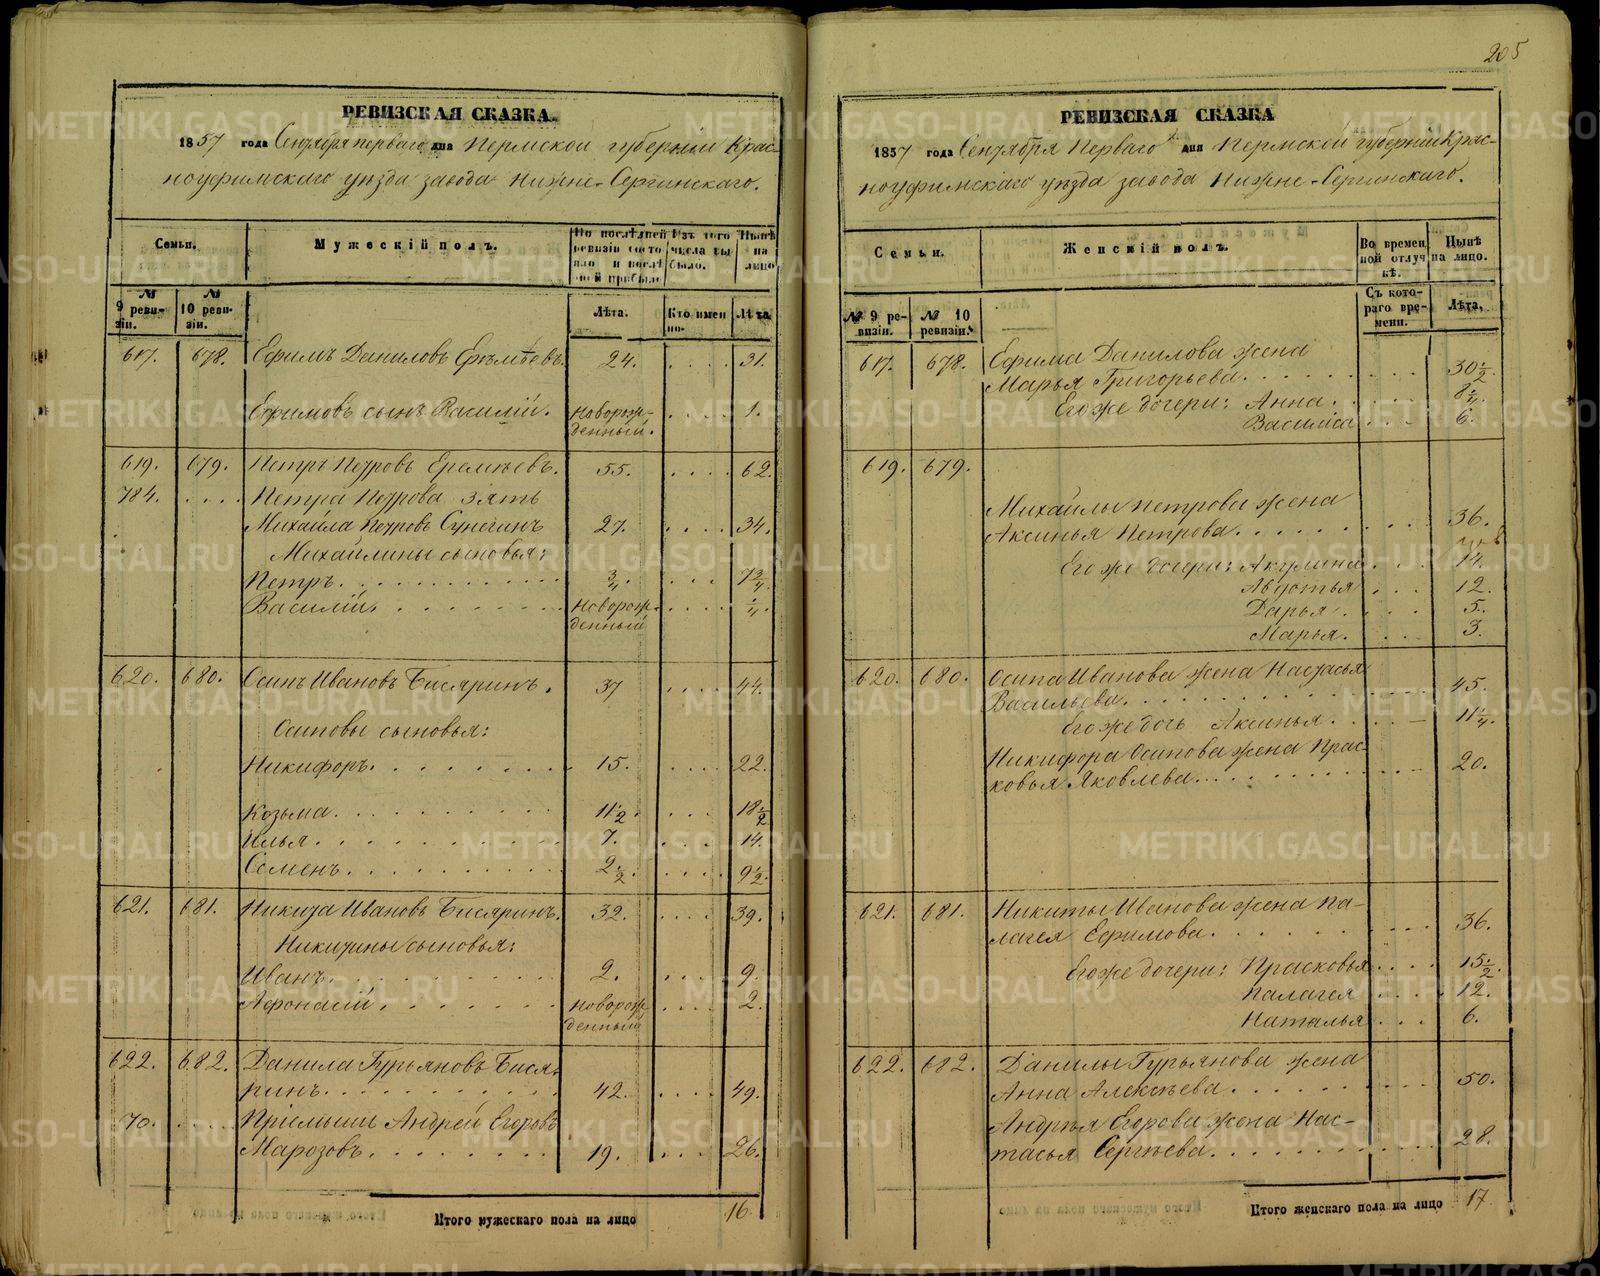 205
РЕВИЗСКАЯ СКАЗКА.
1857 года Сентября перваго дня Пермской губерніи Крас-
ноуфимскаго уѣзда завода Нижне-Сергинскаго.
Семьи. Мужескій полъ. По послѣдней ревизіи состояло и послѣ ной прибыло Изъ того числа выбыло. Нынѣ на лицо
№ 9 ревизіи. № 10 ревизіи. Лѣта. Кто именно. Лѣта
617. 678. Ефимъ Даниловъ Еремѣевъ. 24. .... 31.
Ефимовъ сынъ Василій. Новорожденный. .... 1.
619. 679. Петръ Петровъ Еремѣевъ. 55. .... 62.
784. .... Петра Петрова зять
Михайла Петровъ 27. .... 34.
Михайлины сыновья:
Петръ. 3/4. .... 7 3/4.
Василій. Новорожденный .... 1/4.
620. 680. Осипъ Ивановъ Бисяринъ. 37 .... 44.
Осиповы сыновья:
Никифоръ. 15. .... 22.
Козьма. 11 1/2. .... 18 1/2
Илья. 7. .... 14.
Семенъ. 2 1/2. .... 9 1/2.
621. 681. Никита Ивановъ Бисяринъ. 32. .... 39.
Никитины сыновья:
Иванъ. 2. .... 9.
Афонасій. Новорожденный .... 2.
622. 682. Данила Гурьяновъ Бися-
ринъ. 42. .... 49.
70. .... Пріемышъ Андрей Егоровъ
Марозовъ. 19. .... 26.
Итого мужескаго пола на лицо 16.
РЕВИЗСКАЯ СКАЗКА
1857 года Сентября Перваго дня Пермской губерніи Крас-
ноуфимскаго уѣзда завода Нижне-Сергинскаго.
Семьи. Женскій полъ. Во временной отлучкѣ. Нынѣ на лицо.
№ 9 ревизіи. № 10 ревизіи. Съ котораго времени. Лѣта.
617. 678. Ефима Данилова жена
Марья Григорьева. 30 1/2.
Его же дочери: Анна. 8
Василиса .... 6.
619. 679.
Михайлы Петрова жена
Аксинья Петрова. 36.
Его же дочери: Акулина .... 14.
Авдотья .... 12.
Дарья .... 5.
Марья. .... 3.
620. 680. Осипа Иванова жена Настасья
Васильева. 45.
Его же дочь Аксинья. 11 1/4.
Никифора Осипова жена Прас-
ковья Яковлева. 20.
621. 681. Никиты Иванова жена Па-
лагея Ефимова. 36.
Его же дочери: Прасковья .... 15 1/2.
Палагея .... 12.
Наталья .... 6.
622. 682. Данилы Гурьянова жена
Анна Алексѣева. 50.
Андрѣя Егорова жена Нас-
тасья Сергѣева. 28.
Итого женскаго пола на лицо 17.
METRIKI.GASO-URAL.RU